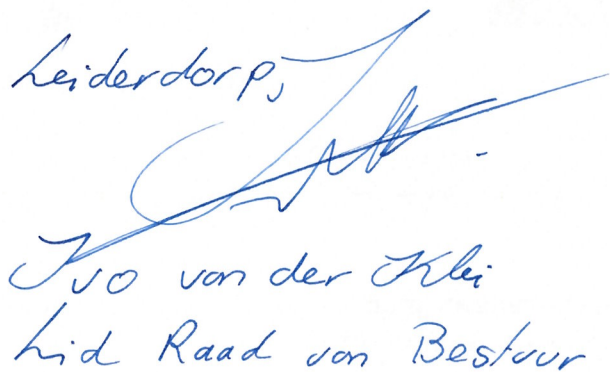 Leiderdorp,
Ivo van der Klei
Lid Raad van Bestuur